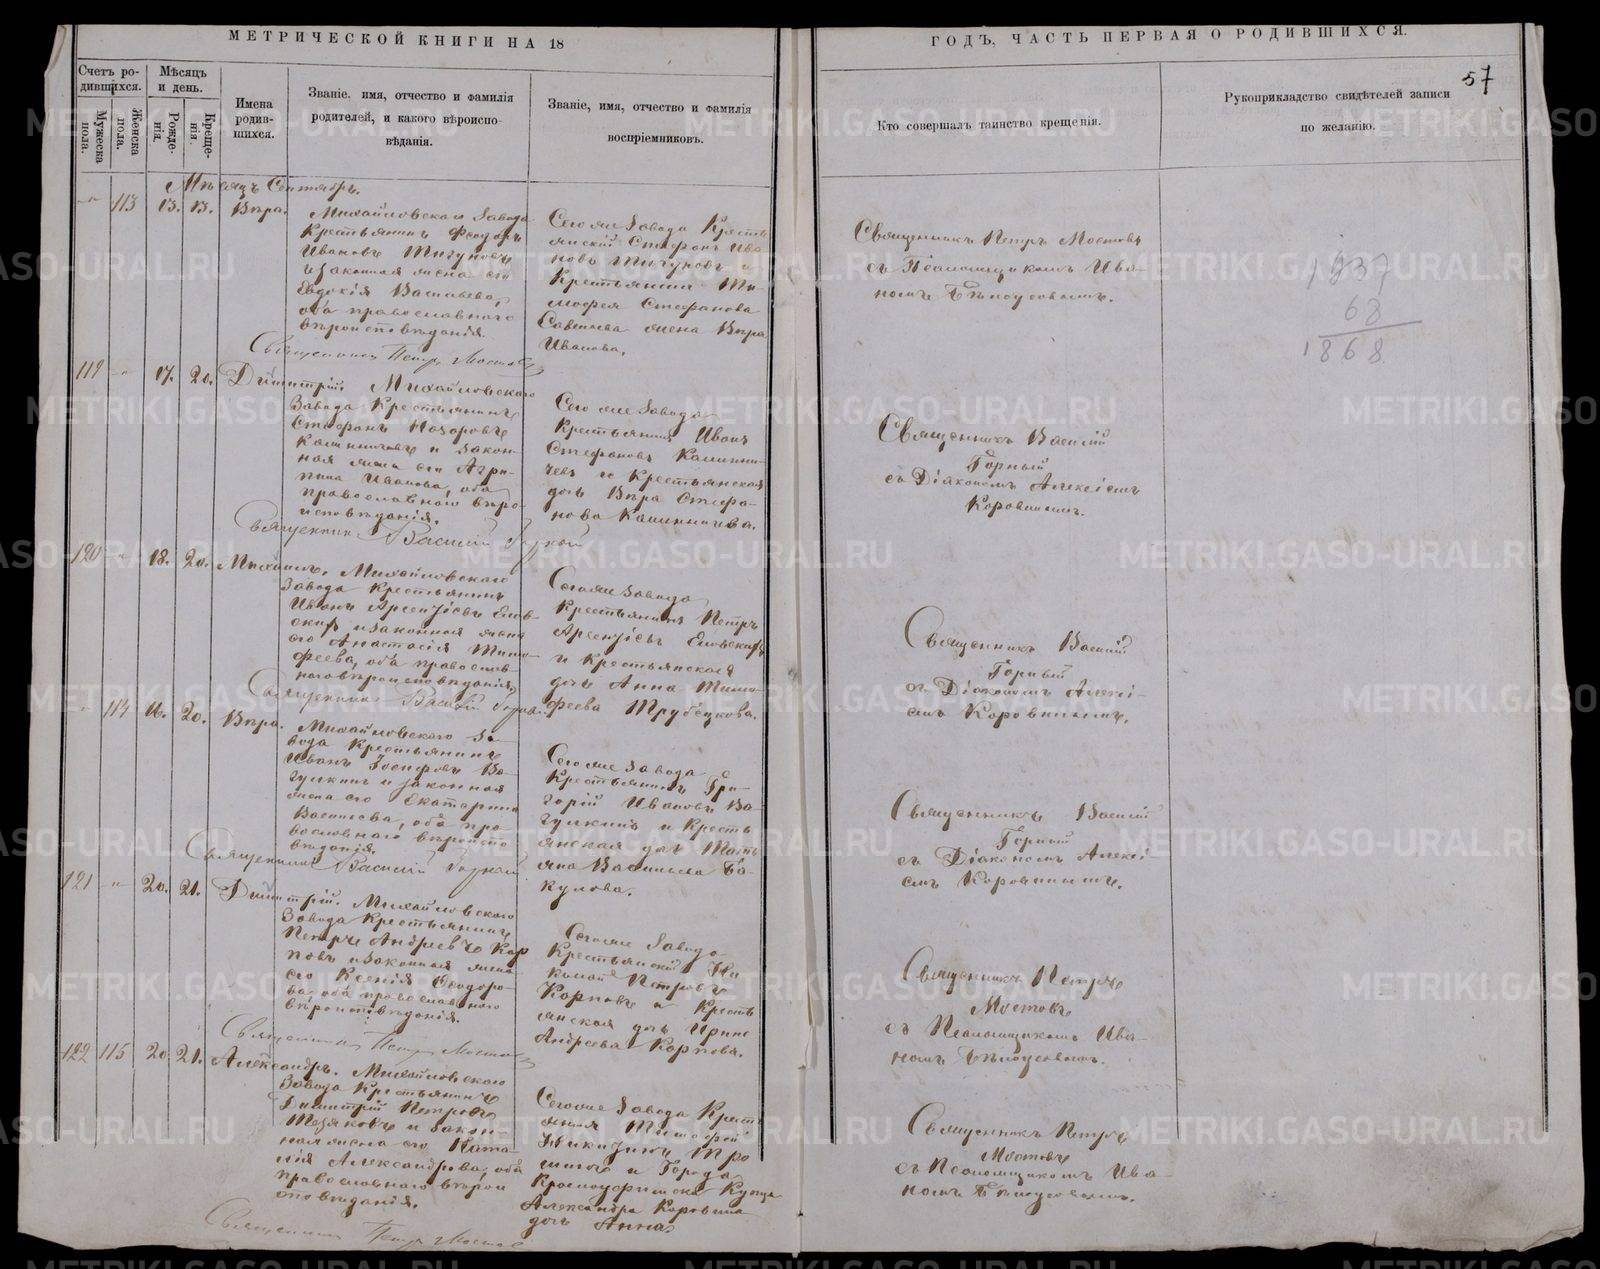 МЕТРИЧЕСКОЙ КНИГИ НА 18
ГОДЪ, ЧАСТЬ ПЕРВАЯ О РОДИВШИХСЯ.
57
Счетъ ро-
дившихся.
Мужеска
пола.
Женска
пола.
Мѣсяцъ
и день.
Рожде-
нія.
Креще-
нія.
Имена
родив-
шихся.
Званіе, имя, отчество и фамилія
родителей, и какого вѣроиспо-
вѣданія.
Званіе, имя, отчество и фамилія
воспріемниковъ.
Кто совершалъ таинство крещенія.
Рукоприкладство свидѣтелей записи
по желанію.
Мѣсяцъ Сентябрь.
113 13. 13. Вѣра.
Михайловскаго Завода
Крестьянинъ Феодоръ
Ивановъ Тигуновъ
и законная жена его
Евдокія Васильева,
оба православнаго
вѣроисповѣданія.
Сегоже Завода Кресть
янскій Стефанъ Ива
новъ Тигуновъ и
Крестьянина Ти-
мофея Стефанова
жена Вѣра
Иванова.
Священникъ Петръ Мостовъ
съ Псаломщикомъ Ива-
номъ Бѣлоусовымъ.
Священникъ Петръ Мостовъ
119 17. 20. Димитрій.
Михайловскаго
Завода Крестьянинъ
Стефанъ Назаровъ
Калиничевъ и закон-
ная жена его Агри-
пина Иванова, оба
православнаго вѣро-
исповѣданія.
Сегоже Завода
Крестьянинъ Иванъ
Стефановъ Калини-
чевъ и Крестьянская
дочь Вѣра Стефа-
нова Калиничева.
Священникъ Василій
Горный
съ Діакономъ Алексіемъ
Коровинымъ.
Священникъ Василій Горный
120 18. 20. Михаилъ.
Михайловскаго
Завода Крестьянинъ
Иванъ Арсеніевъ
и законная жена
его Анастасія Тимо-
феева, оба православ-
наго вѣроисповѣданія.
Сегоже Завода
Крестьянинъ Петръ
Арсеніевъ
и Крестьянская
дочь Анна Тимо-
феева Трубецкова.
Священникъ Василій
Горный
съ Діакономъ Алексі-
емъ Коровинымъ.
Священникъ Василій Горный
114 16. 20. Вѣра.
Михайловскаго За-
вода Крестьянинъ
Иванъ Іосифовъ Ва-
гулкинъ и законная
жена его Екатерина
Васильева, оба пра-
вославнаго вѣроиспо
вѣданія.
Сегоже Завода
Крестьянинъ Гри-
горій Ивановъ Ва-
гулкинъ и Кресть
янская дочь Тать
яна Васильева Ба-
кулова.
Священникъ Василій
Горный
съ Діакономъ Алексі
емъ Коровинымъ.
Священникъ Василій Горный
121 20. 21. Димитрій.
Михайловскаго
Завода Крестьянинъ
Петръ Андреевъ Кар
повъ и законная жена
его Ксенія Феодоро-
ва, оба православнаго
вѣроисповѣданія.
Сегоже Завода
Крестьянскій Ни
колай Петровъ
Карповъ и Кресть
янская дочь Ирина
Андреева Карпова.
Священникъ Петръ
Мостовъ
съ Псаломщикомъ Ива-
номъ Бѣлоусовымъ.
Священникъ Петръ Мостовъ
122 115 20 21. Александръ.
Михайловскаго
Завода Крестьянинъ
Димитрій Петровъ
и закон-
ная жена его Ната-
лія Александрова, оба
православнаго вѣрои
сповѣданія.
Сегоже Завода Кресть
янинъ Тимофей
и Города
Красноуфимска Купца
Александра Коровина
дочь Анна.
Священникъ Петръ
Мостовъ
съ Псаломщикомъ Ива
номъ Бѣлоусовымъ.
Священникъ Петръ Мостовъ
1937
68
1868
METRIKI.GASO-URAL.RU